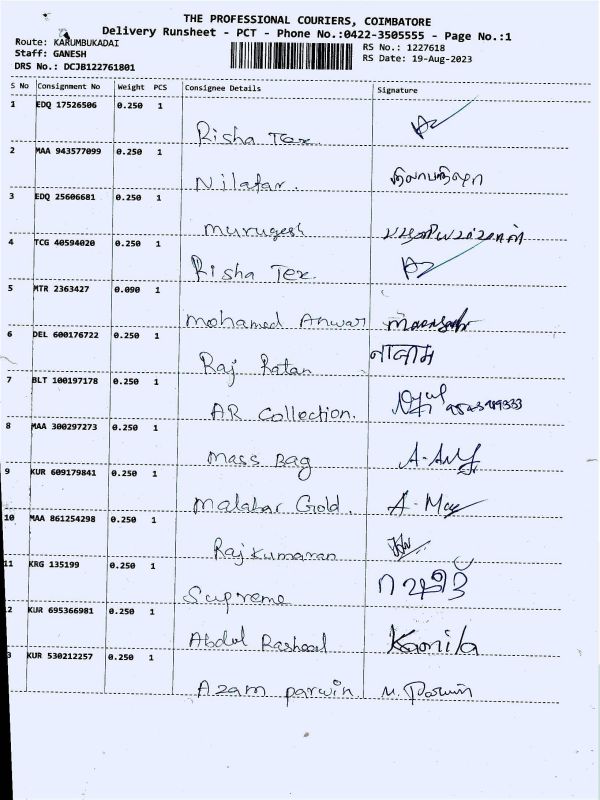 THE PROFESSIONAL COURIERS, COIMBATORE
Delivery Runsheet - PCT - Phone No.:0422-3505555 - Page No.:1
Route: KARUMBUKADAI
RS No.: 1227618
Staff: GANESH
RS Date: 19-Aug-2023
DRS No.: DCJB122761801
S No Consignment No Weight PCS Consignee Details Signature
1 EDQ 17526506 0.250 1
Risha Tex
2 MAA 943577099 0.250 1
Nilafar.
3 EDQ 25606681 0.250 1
Murugesh
4 TCG 40594020 0.250 1
Risha Tex.
5 MTR 2363427 0.090 1
Mohamed Anwar
6 DEL 600176722 0.250 1
Raj Ratan
7 BLT 100197178 0.250 1
A.R Collection.
8 MAA 300297273 0.250 1
Mass Bag
9 KUR 609179841 0.250 1
Malabar Gold.
10 MAA 861254298 0.250 1
Rajkumaran
11 KRG 135199 0.250 1
Supreme
12 KUR 695366981 0.250 1
Abdul Rasheed Kamila
3 KUR 530212257 0.250 1
Azam parwin M. Parwin